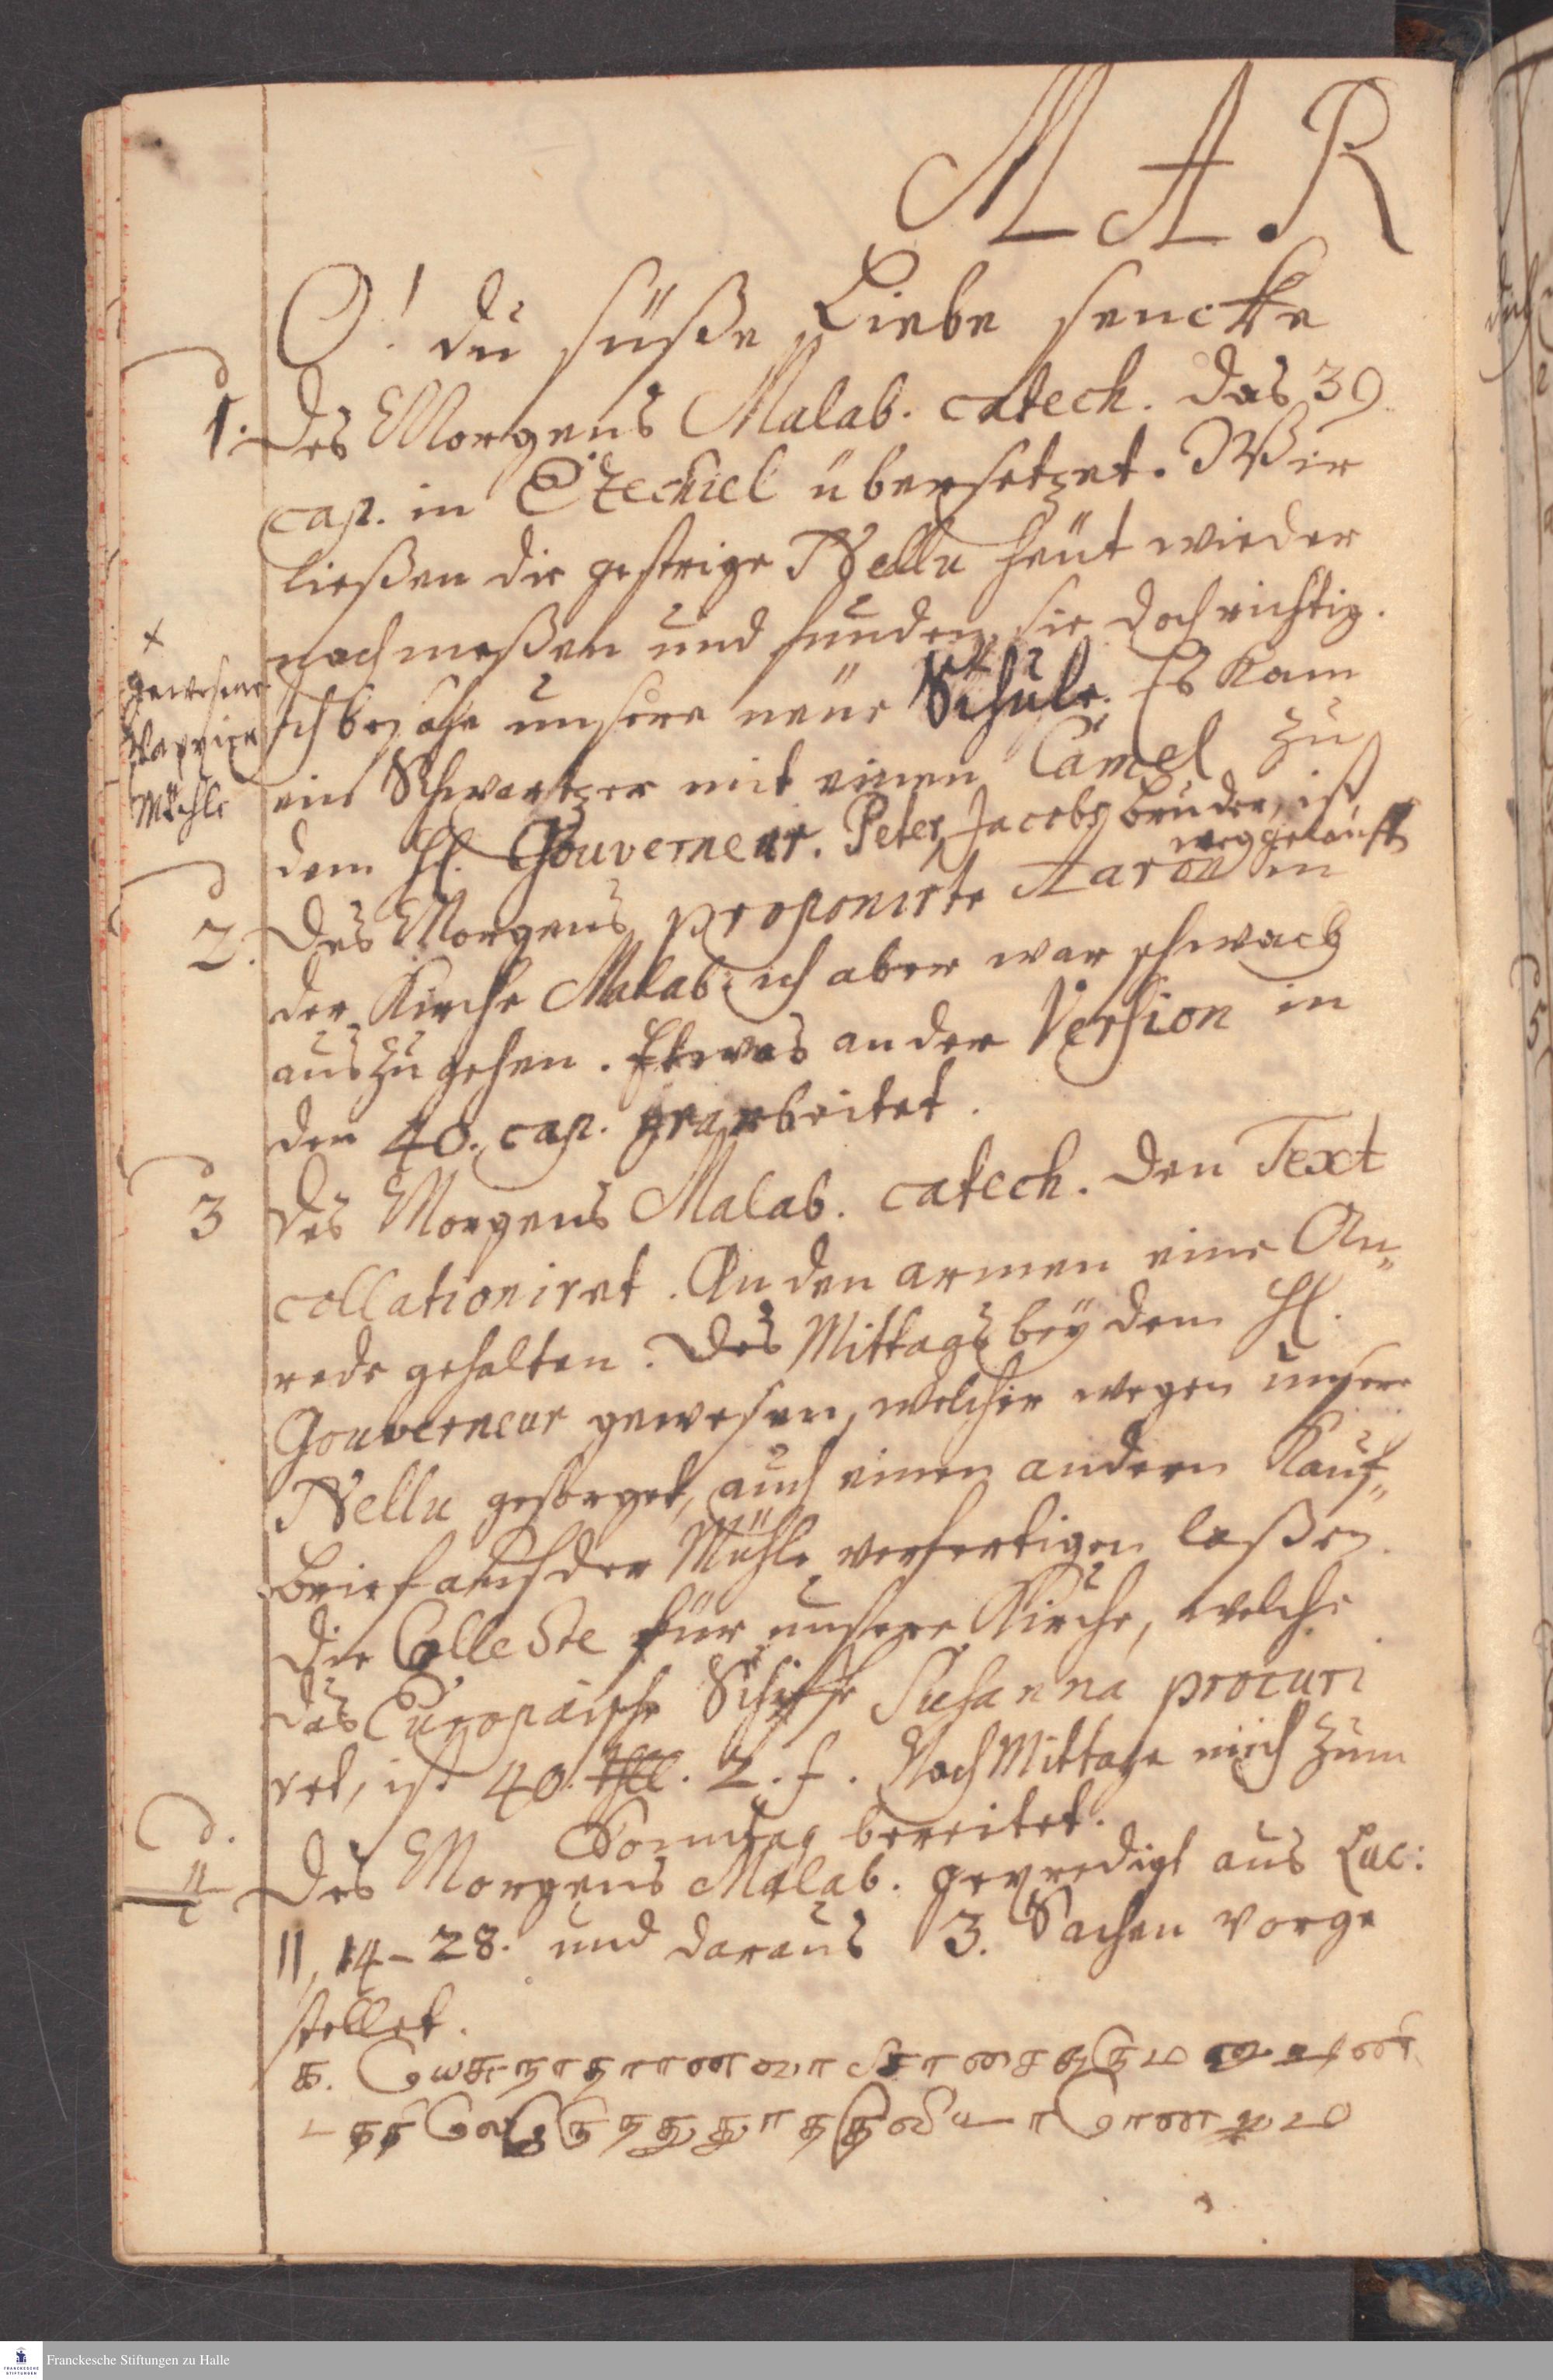 M A R
O! du süße Liebe sencke
1. Des Morgens Malab. catech. das 39.
cap. in Ezechiel übersetzet. Wir
ließen die gestrige Nellu heut wieder
nachmeßen und funden sie doch richtig.
Ich besahe unsere neue Schule. Es kam
x
gewesene
Pappier
Mühle
ein Schwartzer mit einen Camel zu
dem H. Gouverneur. Peter, Jacobs bruder, ist
weggelaufft
2. Des Morgens proponirte Aaron in
der Kirche Malab. ich aber war schwach
auszugehen. Etwas an der Version in
den 40. cap. gearbeitet.
3 Des Morgens Malab. catech. den Text
collationiret. An den armen eine An-
rede gehalten. Des Mittags bey dem H.
Gouverneur gewesen, welcher wegen unsere
Nellu gesorget, auch einen andern Kauf-
brief auf der Mühle verfertigen laßen.
Die Collecte für unsere Kirche, welche
das Europäische Schiff Susanna procuri
ret, ist 40. thll. 2. f. Nach Mittage mich zum
Sonntag bereitet.
d.
4 Des Morgens Malab. gepredigt aus Luc:
11, 14-28. und daraus 3. Sachen vorge
stellet.